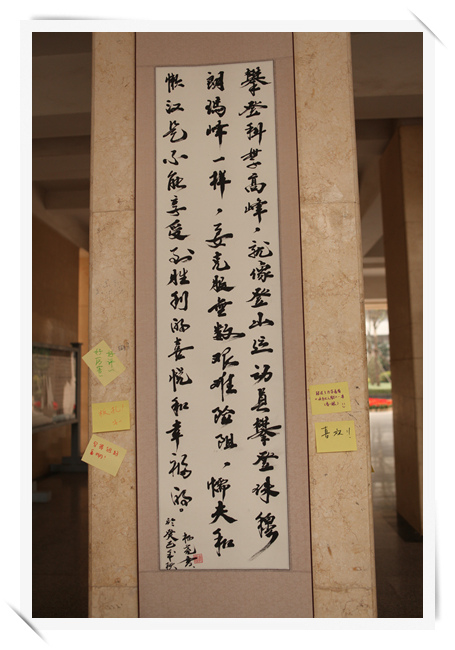 攀登科学高峰，就像登山运动员攀登珠穆
朗玛峰一样，要克服無数艰难险阻，懦夫和
懒汉是不能享受到胜利的喜悦和幸福的。
於癸巳年秋
喜欢！